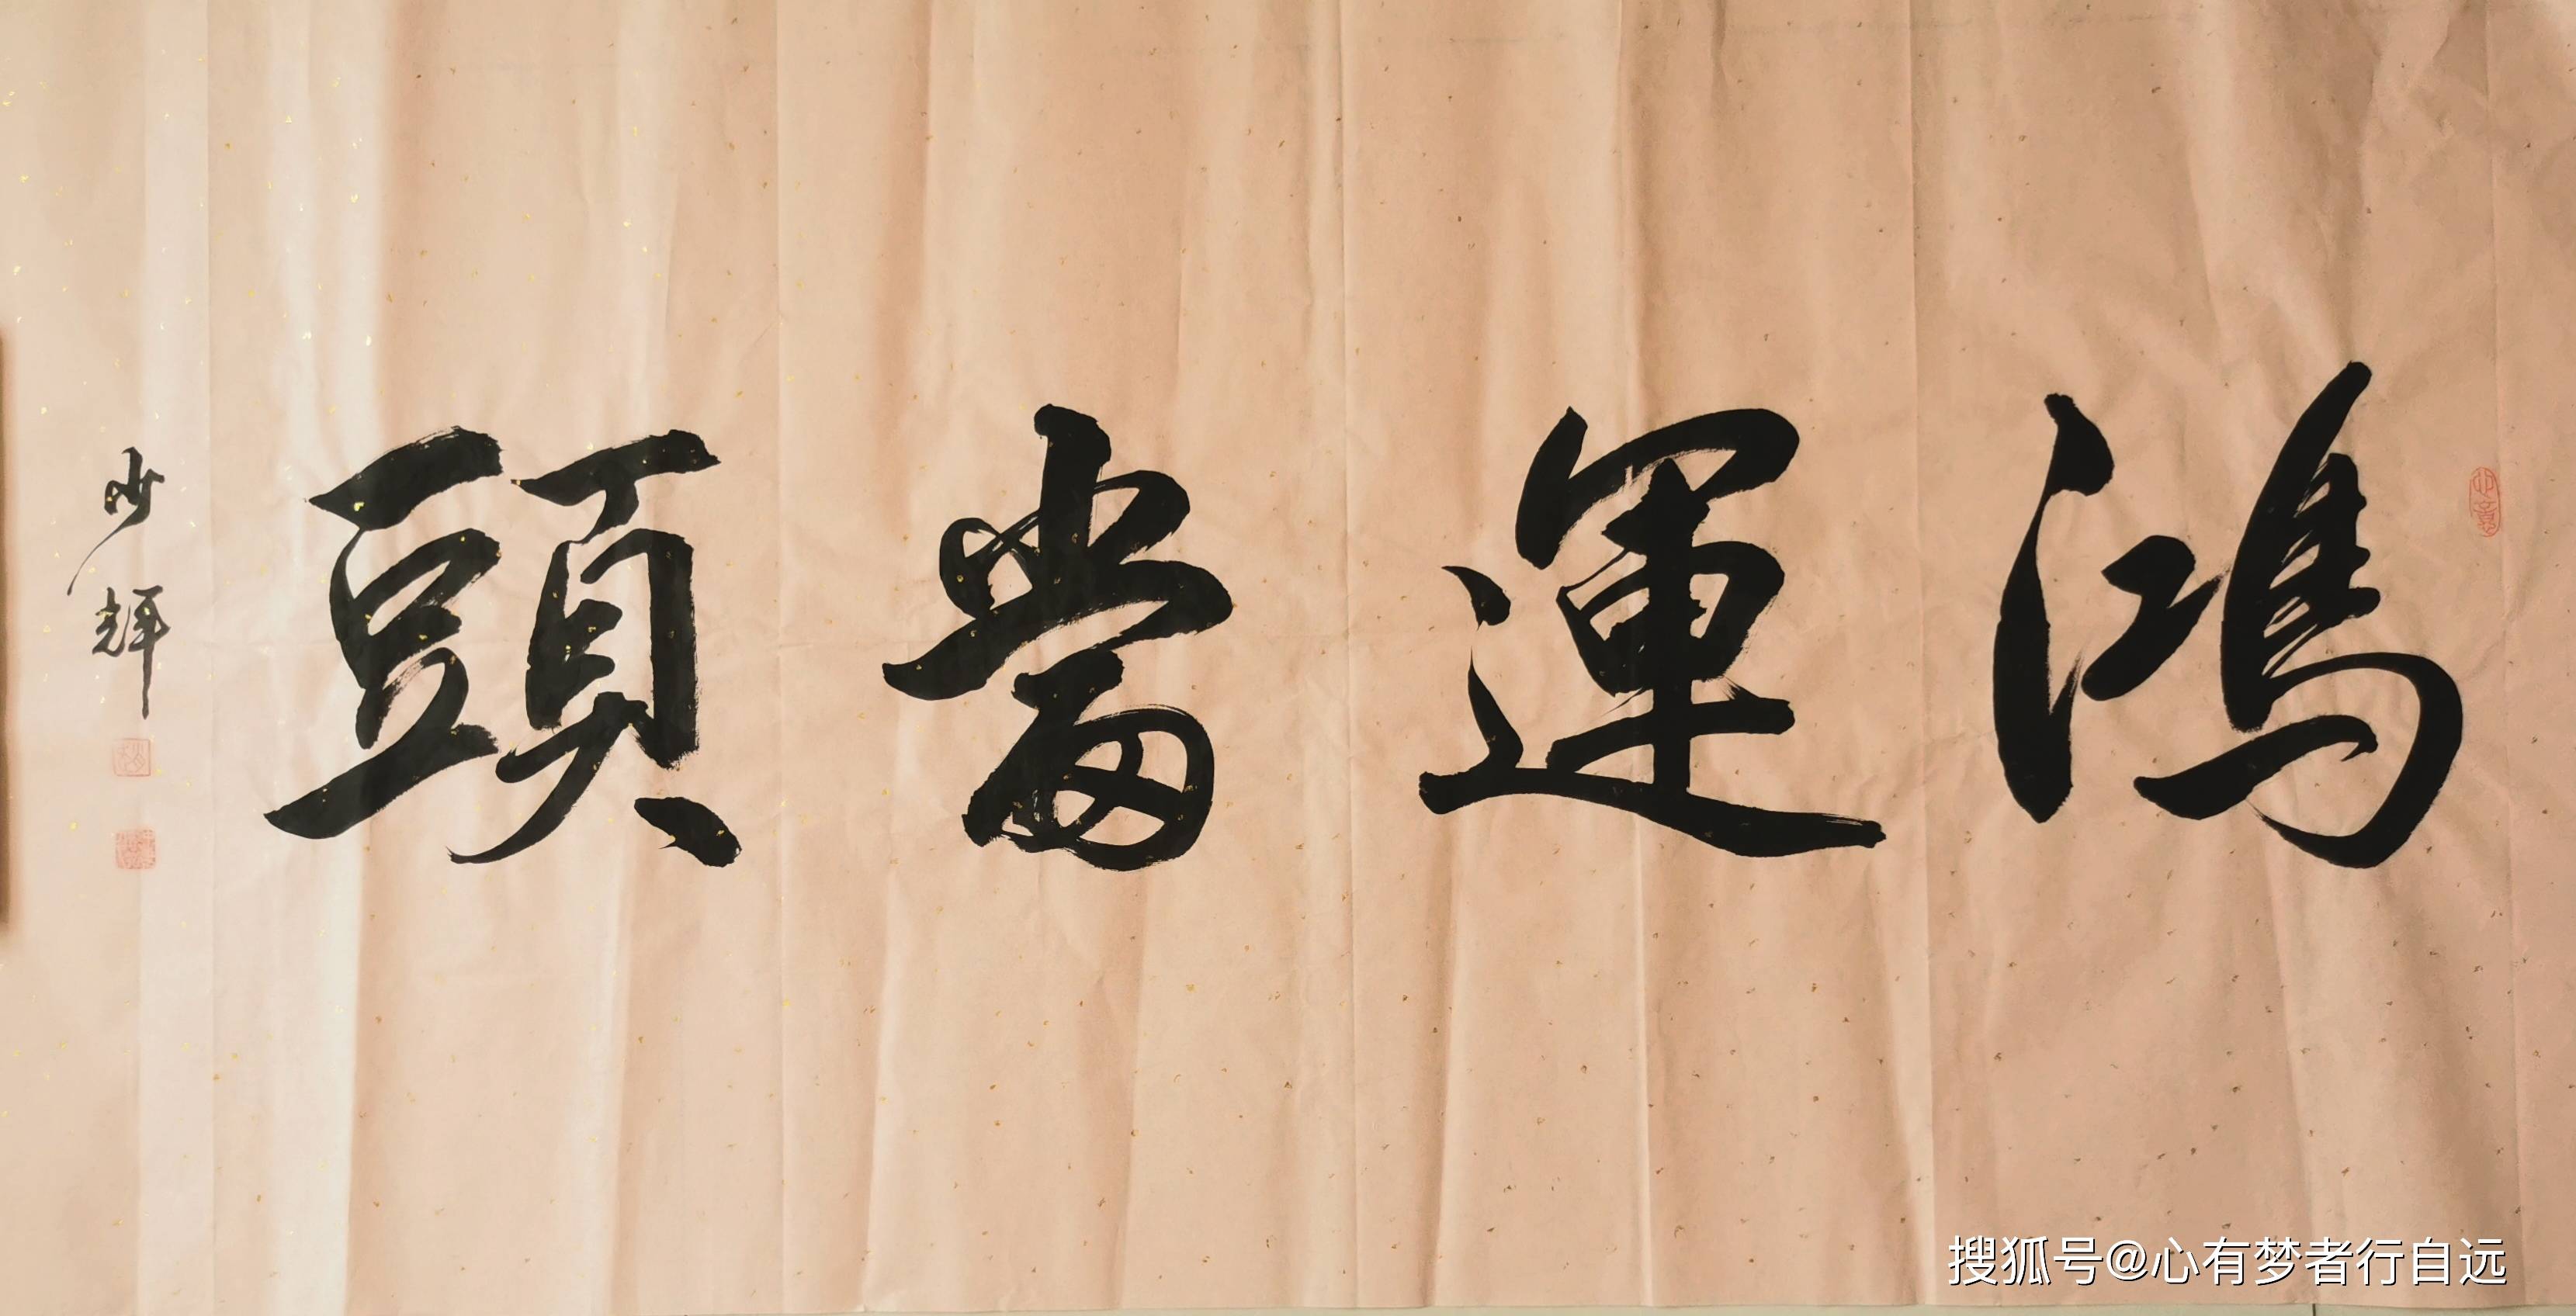 鴻運當頭
少輝
搜狐号@心有梦者行自远